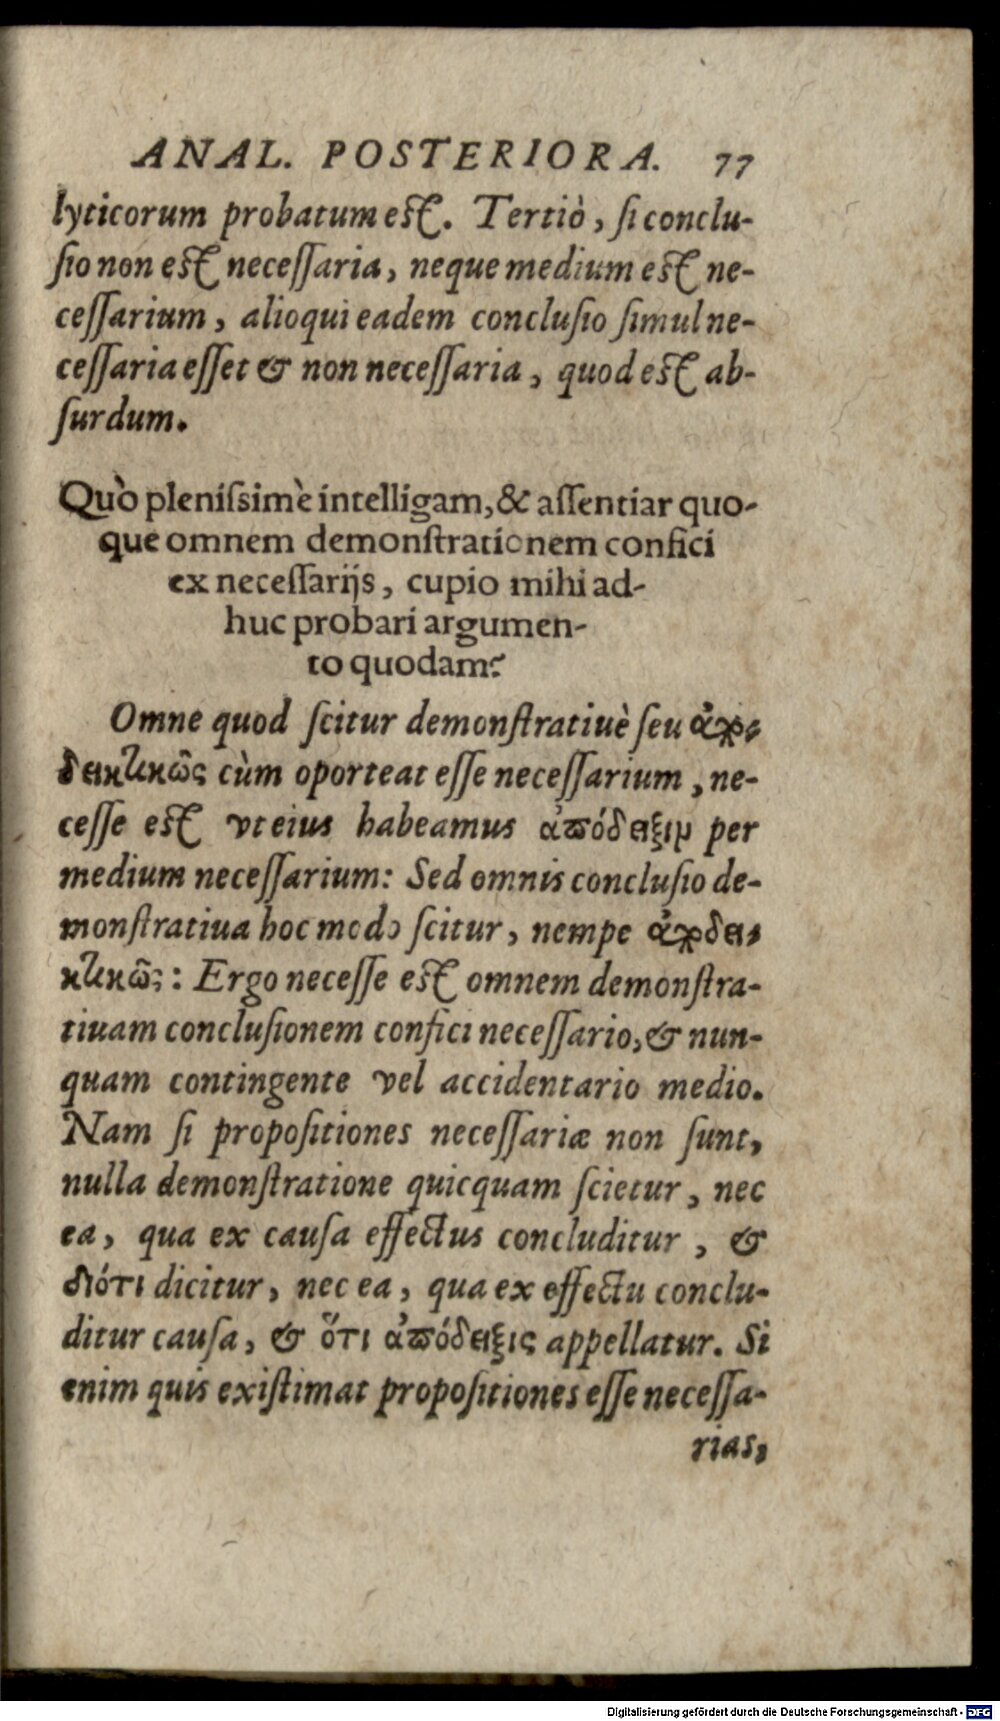 ANAL. POSTERIORA. 77
lyticorum probatum est. Tertiò, ſi conclu-
ſio non est neceſſaria, neque medium est ne-
ceſſarium, alioqui eadem concluſio ſimul ne-
ceſſaria eſſet & non neceſſaria, quod est ab-
ſurdum.
Quò pleniſsimè intelligam, & aſſentiar quo-
que omnem demonſtrationem confici
ex neceſſarijs, cupio mihi ad-
huc probari argumen-
to quodam?
Omne quod ſcitur demonſtratiuè ſeu ἀπο-
δεικτικῶς cùm oporteat eſſe neceſſarium, ne-
ceſſe est vt eius habeamus ἀπόδειξιν per
medium neceſſarium: Sed omnis concluſio de-
monſtratiua hoc modo ſcitur, nempe ἀποδει-
κτικῶς: Ergo neceſſe est omnem demonſtra-
tiuam concluſionem confici neceſſario, & nun-
quam contingente vel accidentario medio.
Nam ſi propoſitiones neceſſariæ non ſunt,
nulla demonſtratione quicquam ſcietur, nec
ea, qua ex cauſa effectus concluditur, &
διότι dicitur, nec ea, qua ex effectu conclu-
ditur cauſa, & ὅτι ἀπόδειξις appellatur. Si
enim quis exiſtimat propoſitiones eſſe neceſſa-
rias,
Digitalisierung gefördert durch die Deutsche Forschungsgemeinschaft - DFG